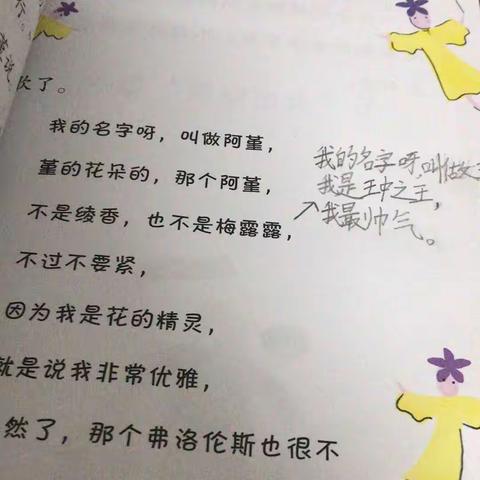 欢了。
我的名字呀，叫做阿堇，
堇的花朵的，那个阿堇，
不是绫香，也不是梅露露，
不过不要紧，
因为我是花的精灵，
就是说我非常优雅，
然了，那个弗洛伦斯也很不
我的名字呀，叫做
我是王中之王，
我最帅气。